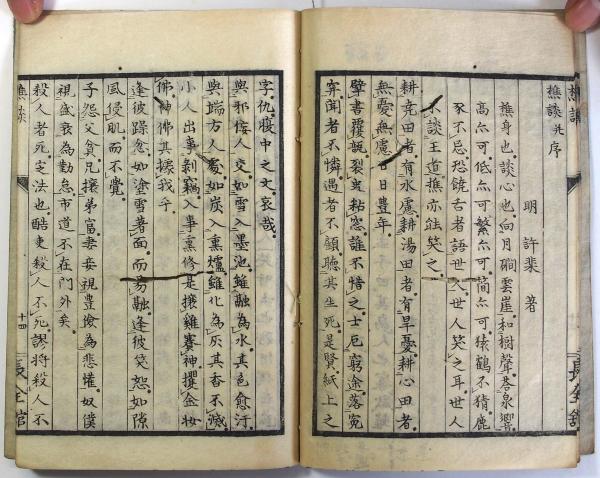 樵談并序
明 許棐 著
樵身也談心也向月磵雲崖和樹聲答泉響
高亦可低亦可繁亦可簡亦可猿鶴不猜鹿
豕不忌恐饒舌者語世人世人笑之耳世人
不談王道樵亦能笑之
耕堯田者有水慮耕湯田者有旱憂耕心田者
無憂無慮日日豊年
書覆瓿裂史粘窓誰不惜之士厄窮途落寃
穽聞者不憐遇者不顧聽其生死是賢紙上之
字仇腹中之文哀哉
與邪佞人交如雪入墨池雖融為水其色愈汙
與端方人處如炭入熏爐雖化為灰其香不滅
小人出事剽竊入事熏修是攘雞賽神攫金妝
佛神佛其據我乎
逢彼躁忿如塗雪著面而易融逢彼笑恕如隙
風侵肌而不覺
子怨父貧兄攘弟富妻妾視豊儉為悲懽奴僕
視盛衰為勤怠市道不在門外矣
殺人者死定法也酷吏殺人不死謬將殺人不
樵談 十四